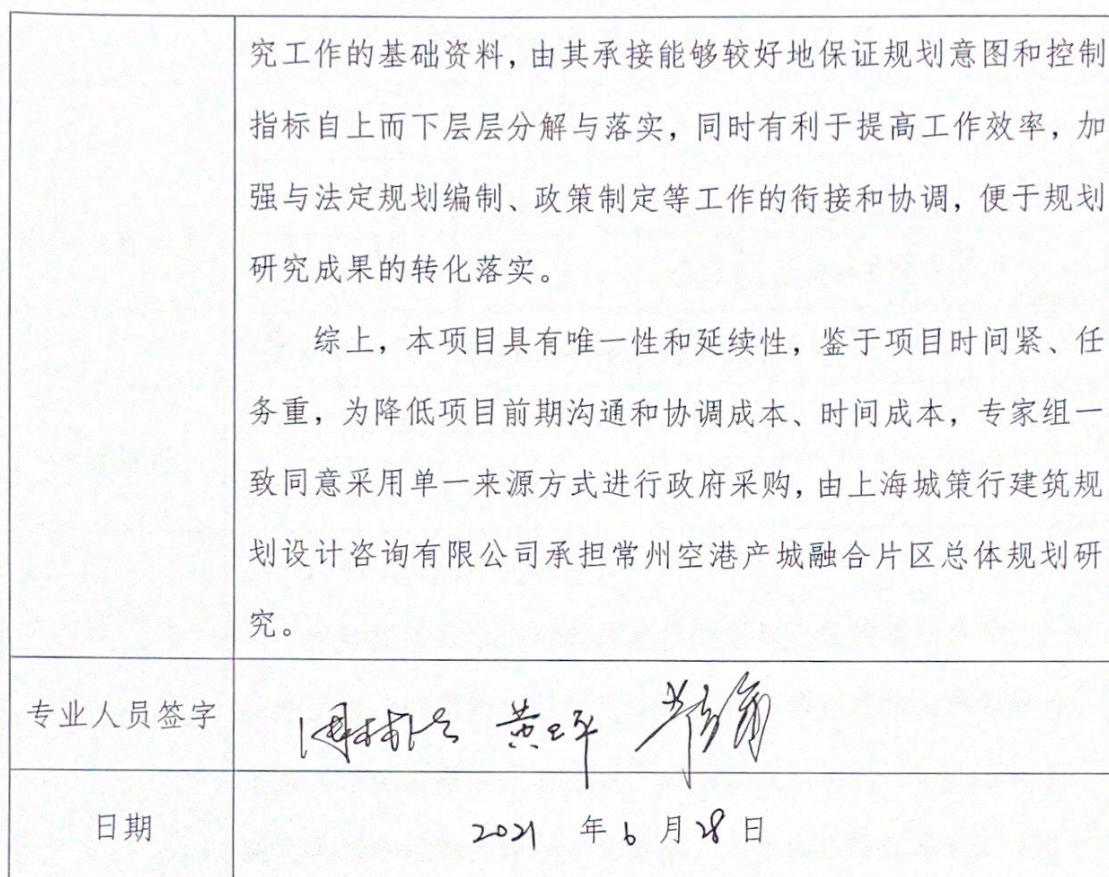 究工作的基础资料，由其承接能够较好地保证规划意图和控制
指标自上而下层层分解与落实，同时有利于提高工作效率，加
强与法定规划编制、政策制定等工作的衔接和协调，便于规划
研究成果的转化落实。
综上，本项目具有唯一性和延续性，鉴于项目时间紧、任
务重，为降低项目前期沟通和协调成本、时间成本，专家组一
致同意采用单一来源方式进行政府采购，由上海城策行建筑规
划设计咨询有限公司承担常州空港产城融合片区总体规划研
究。
专业人员签字
日期 2021 年 6 月 28 日